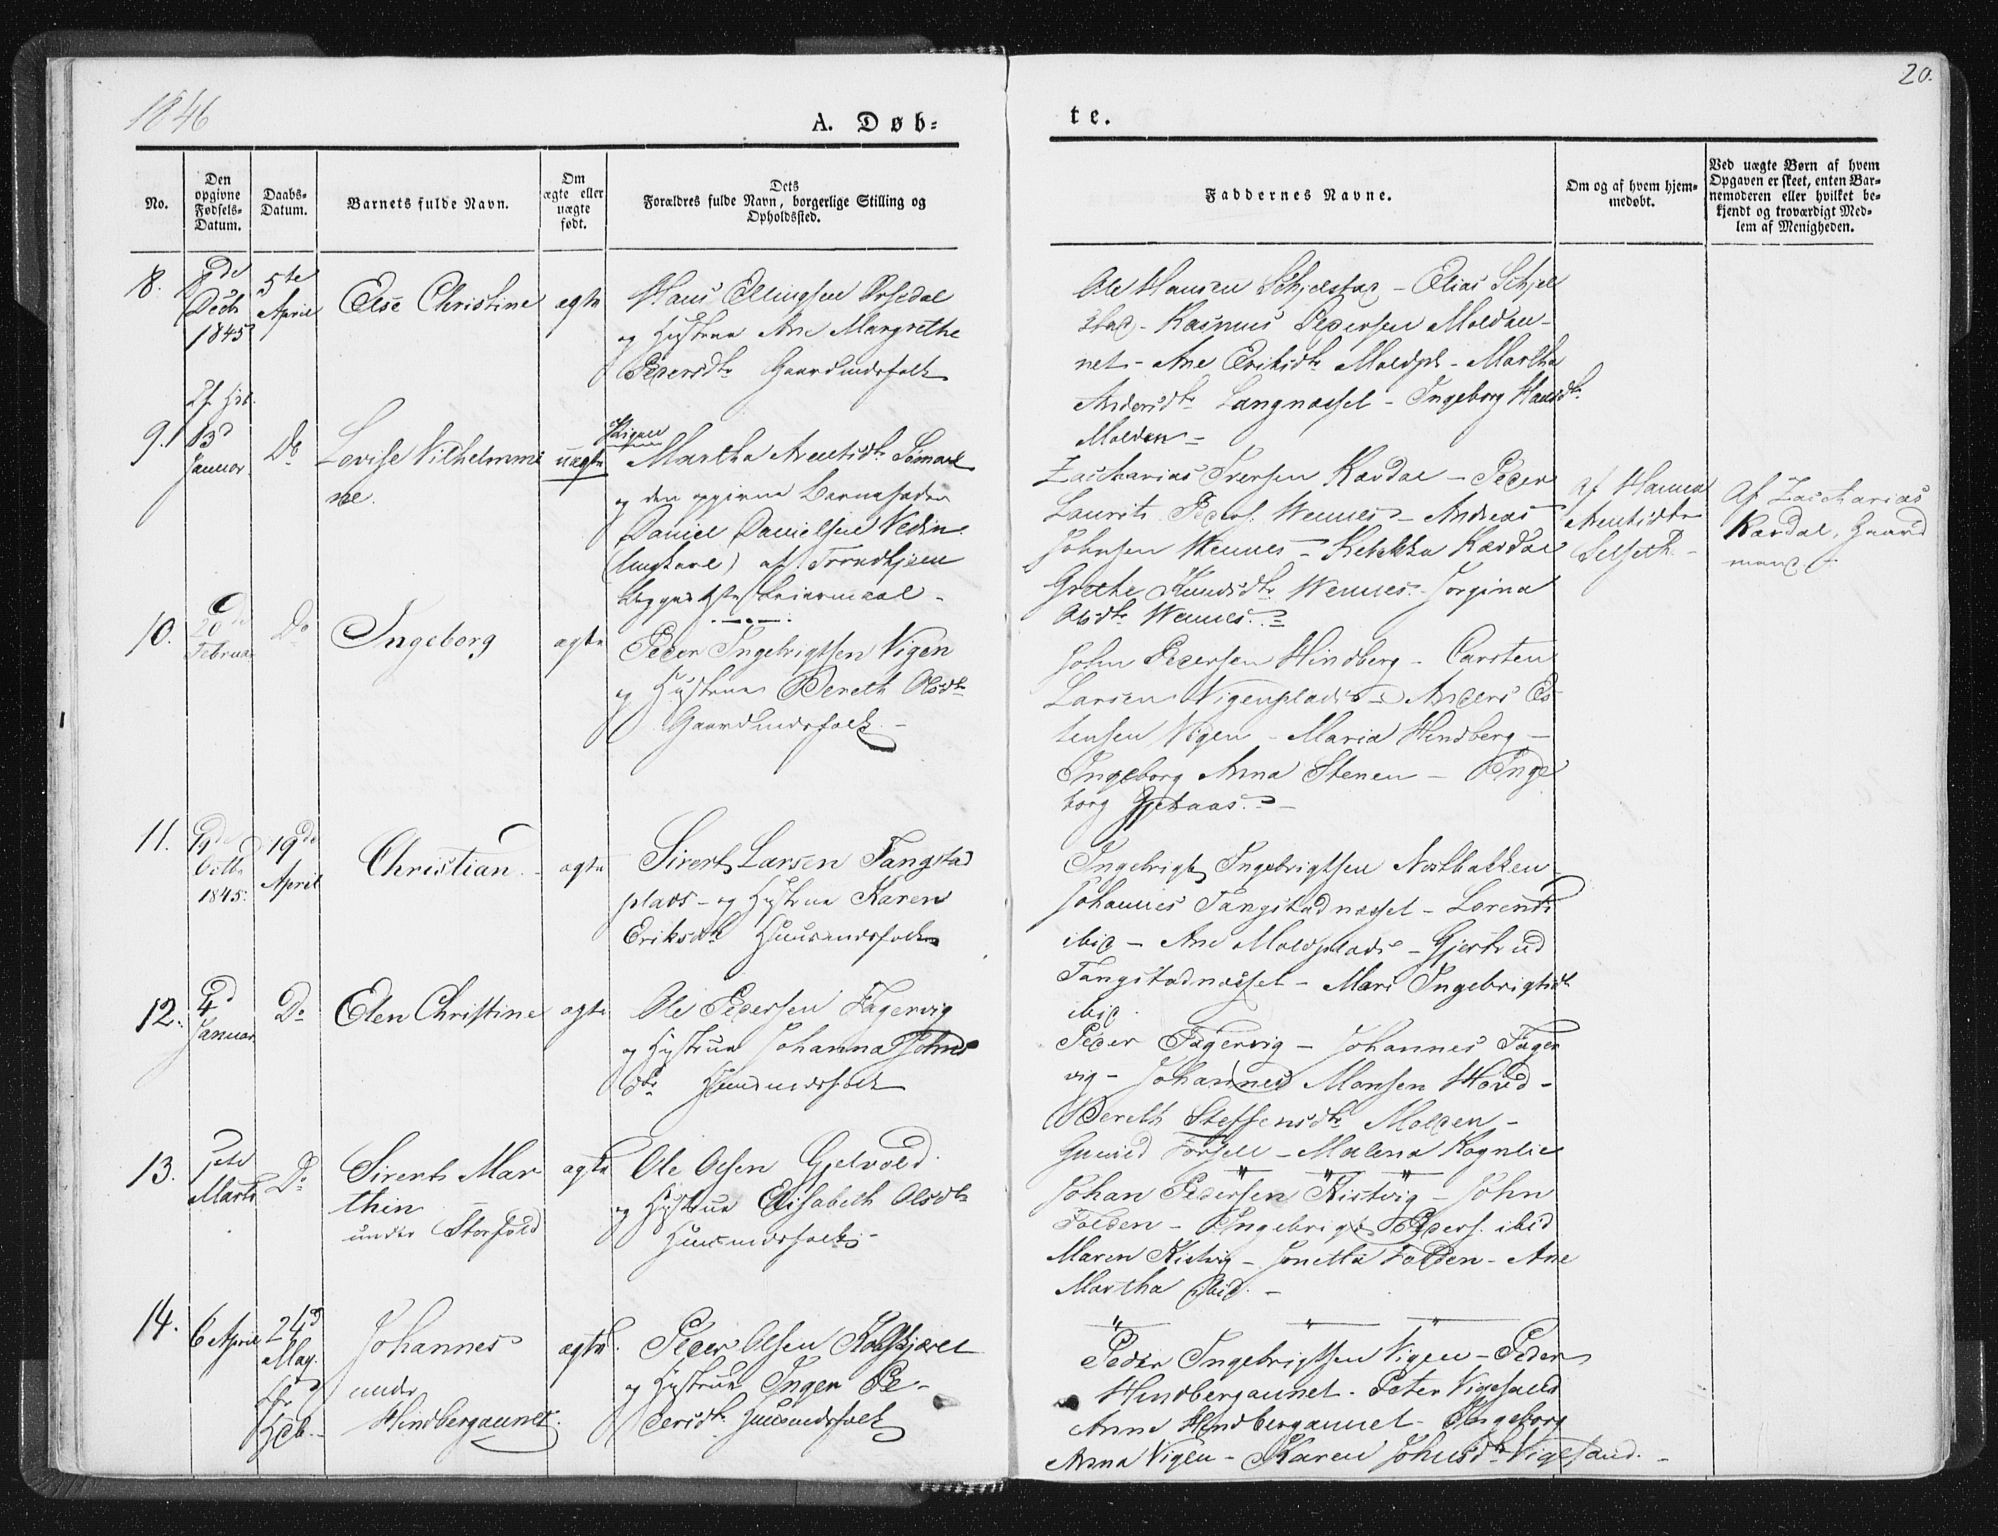 1846
20.
A. Døb-
te.
No.
Den opgivne Fødsels-Datum.
Daabs-Datum.
Barnets fulde Navn.
Om ægte eller uægte født.
Dets
Forældres fulde Navn, borgerlige Stilling og
Opholdssted.
Faddernes Navne.
Om og af hvem hjem-
medøbt.
Ved uægte Børn af hvem
Opgaven er skeet, enten Bar-
nemoderen eller hvilket be-
kjendt og troværdigt Med-
lem af Menigheden.
8.
Decb
1845
5te
April
Else Christine
ægte
Hans Ellingsen
og Hustrue Ane Margrethe
Pedersdtr Gaardmdsfolk
Ole Hansen Schjelstad - Elias Schjel
stad - Rasmus Pedersen Moldau-
net - Ane Eriksdtr Moldpl - Martha
Andersdtr Langnæsset - Ingeborg Hansdtr
Molden -
9.
13d
Januar
Do
Lovise Vilhelmmi
ne.
uægte
Pigen
Martha Arentsdtr
og den opgivne Barnefader
Daniel Danielsen
(Ungkarl) af Trondhjem
begges 1ste Leiermaal -
Zacharias Iversen Kardal - Peder
Laurits Peders. Wennes - Andreas
Johnsen Wennes - Rebekka Kardal
Grethe Knudsdtr Wennes - Jorgina
Olsdtr Wennes. -
af Hanna
Arentsdtr
Selseth -
Af Zacharias
Kardal, Gaard
mand.
10.
20de
Februar
Do
Ingeborg
ægte
Peder Ingebrigtsen Vigen
og Hustrue Bereth Olsdtr
Gaardmdsfolk -
John Pedersen Hindberg - Carsten
Larsen Vigenplads - Anders Es
tensen Vigen - Maria Hindberg -
Ingeborg Anna Stenen - Inge
borg Gjetaas. -
11.
19de
Octb.
1845.
19de
April
Christian. -
ægte
Sivert Larsen Tangstad
plads - og Hustrue Karen
Eriksdtr Huusmdsfolk
Ingebrigt Ingebrigtsen Nostbakken
Johannes Tangstadnæsset - Lorents
ibid - Ane Moldplads - Gjertrud
Tangstadnæsset - Mari Ingebrigtsdtr
ibid.
12.
4d
Januar
Do
Elen Christine
ægte
Ole Pedersen Fagervig
og Hustrue Johanna Johns
dtr Huusmdsfolk
Peder Fagervig - Johannes Fager
vig - Johannes Monsen Hovd -
Bereth Steffensdtr Molden -
Gunild Forsell - Malena Rognlie
13.
7de
Marts
Do
Sivert Mar
thin
under Storfold
ægte
Ole Olsen Gjelvold.
og Hustrue Elisabeth Olsdtr
Huusmdsfolk -
Johan Pedersen Kistvig - John
Folden - Ingebrigt Peders. ibid
Maren Kistvig - Jonetta Folden - Ane
Martha ibid. -
14.
6 April
24d
May.
Johannes
under
Hindbergaunet.
ægte.
Peder Olsen Kolskjæret
og Hustrue Inger Pe-
dersdtr. Huusmdsfolk
Peder Ingebrigtsen Vigen - Peder
Hindbergaunet - Peter Vigesand
Anne Hindbergaunet - Ingeborg
Anna Vigen - Karen Johnsdtr Vigesand. -